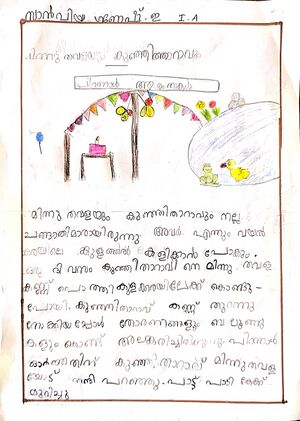 സാൻപിയ ഗണേഷ്-ഇ I.A
മിന്നു തവളയും കുഞ്ഞിത്താറാവും
പിറന്നാൾ ആശംസകൾ
മിന്നു തവളയും കുഞ്ഞിതാറാവും നല്ല
ചങ്ങാതിമാരായിരുന്നു. അവർ എന്നും വയൽ
കരയിലെ കുളത്തിൽ കളിക്കാൻ പോകും.
ഒരു ദിവസം കുഞ്ഞിതാറാവി നെ മിന്നു തവള
കണ്ണ് പൊത്തി കുളത്തരയിലേക്ക് കൊണ്ടു-
പോയി. കുഞ്ഞിതാറാവ് കണ്ണ് തുറന്നു
നോക്കിയപ്പോൾ തോരണങ്ങളും ബലൂണു
കളും കൊണ്ട് അലങ്കരിച്ചിരിക്കുന്നു. പിറന്നാൾ
ഓർത്തതിന് കുഞ്ഞിതാറാവ് മിന്നു തവള
യോട് നന്ദി പറഞ്ഞു. പാട്ട് പാടി കേക്ക്
മുറിച്ചു